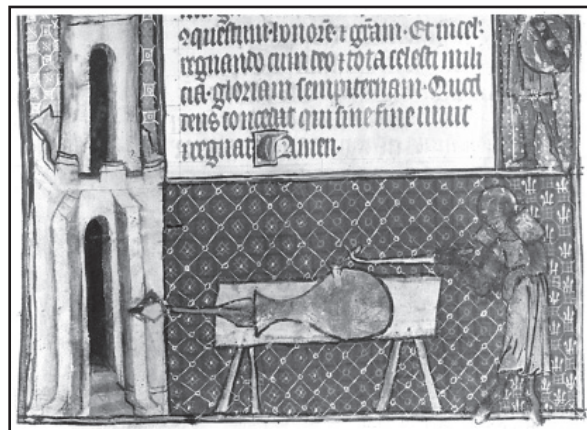 ꝯquestum·honorē ⁊ grām· Et in cel·
regnando cum deo ⁊ tota celesti mili
cia·gloriam sempiternam· Quod
deus concedat qui sine fine uiuit
⁊ regnat Amen·